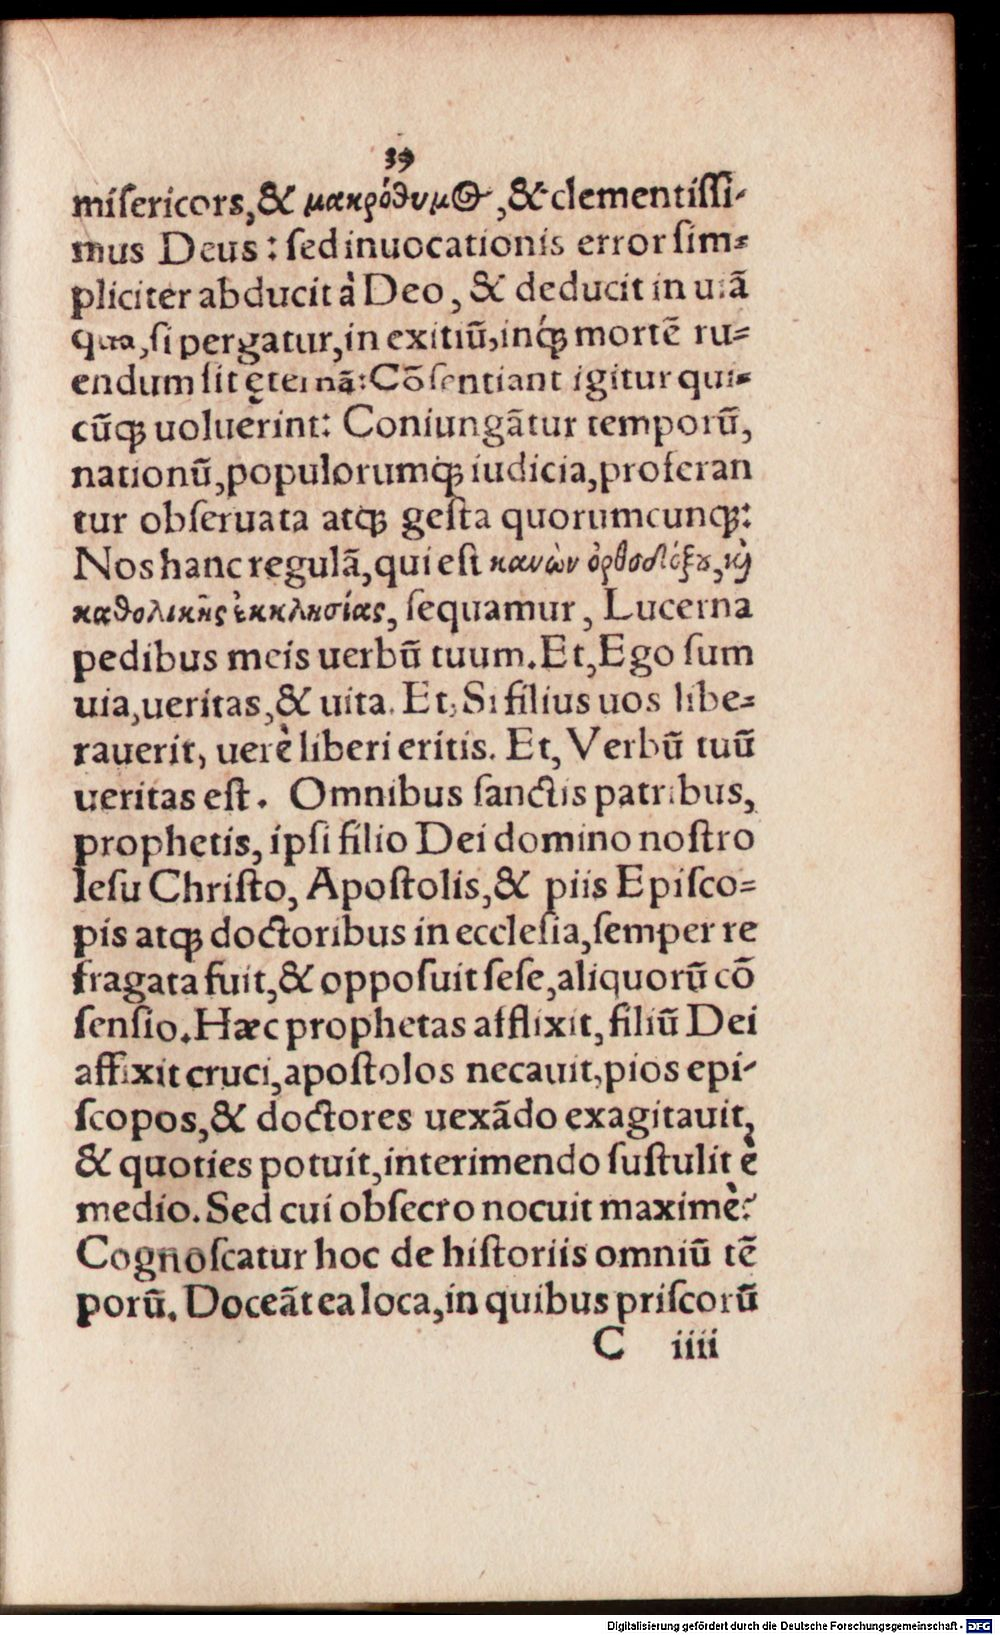 39
misericors, & μακρόθυμος, & clementissi-
mus Deus: sed inuocationis error sim=
pliciter abducit à Deo, & deducit in uiã
qua, si pergatur, in exitiũ, inq́; mortẽ ru=
endum sit ęternã: Cõsentiant igitur qui=
cũq; uoluerint: Coniungãtur temporũ,
nationũ, populorumq́; iudicia, proferan
tur obseruata atq; gesta quorumcunq;:
Nos hanc regulã, qui est κανὼν ὀρθοδόξȣ, κ̀
καθολικῆς ἐκκλησίας, sequamur, Lucerna
pedibus meis uerbũ tuum. Et, Ego sum
uia, ueritas, & uita. Et, Si filius uos libe=
rauerit, uerè liberi eritis. Et, Verbũ tuũ
ueritas est. Omnibus sanctis patribus,
prophetis, ipsi filio Dei domino nostro
Iesu Christo, Apostolis, & piis Episco=
pis atq; doctoribus in ecclesia, semper re
fragata fuit, & opposuit sese, aliquorũ cõ
sensio. Hæc prophetas afflixit, filiũ Dei
affixit cruci, apostolos necauit, pios epi-
scopos, & doctores uexãdo exagitauit,
& quoties potuit, interimendo sustulit è
medio. Sed cui obsecro nocuit maximè?
Cognoscatur hoc de historiis omniũ tẽ
porũ. Doceãt ea loca, in quibus priscorũ
C iiii
Digitalisierung gefördert durch die Deutsche Forschungsgemeinschaft - DFG